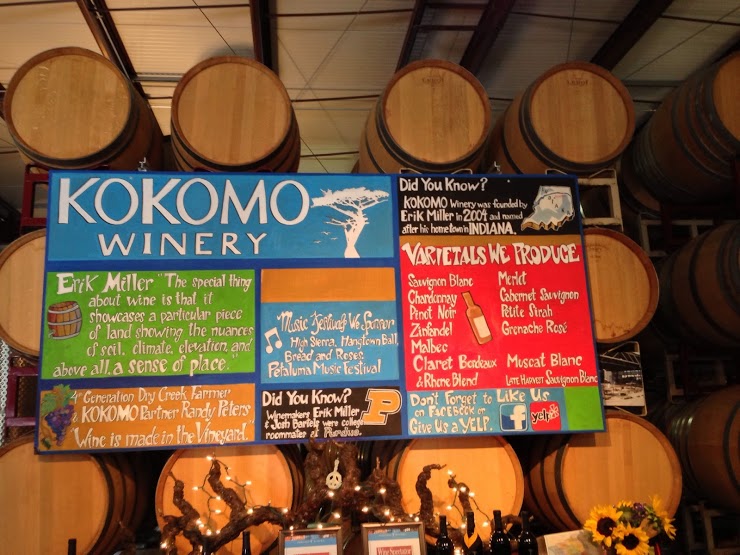 KOKOMO
WINERY
Did You Know?
KOKOMO Winery was founded by
Erik Miller in 2004 and named
after his home town in INDIANA.
VARIETALS WE PRODUCE
Sauvignon Blanc
Chardonnay
Pinot Noir
Zinfandel
Malbec
Claret Bordeaux
& Rhone Blend
Merlot
Cabernet Sauvignon
Petite Sirah
Grenache Rosé
Muscat Blanc
Late Harvest Sauvignon Blanc
Erik Miller "The special thing
about wine is that it
showcases a particular piece
of land showing the nuances
of soil, climate, elevation, and
above all, a sense of place."
Music Festivals We Sponsor
High Sierra, Hangtown Ball,
Bread and Roses,
Petaluma Music Festival
4th Generation Dry Creek Farmer
& KOKOMO Partner Randy Peters
Wine is made in the Vineyard.
Did You Know?
Winemakers Erik Miller
& Josh Bartels were college
roommates at Purdue.
P
Don't Forget to Like
on FACEBOOK or
Give Us a YELP.
f
yelp
Wine Spectator